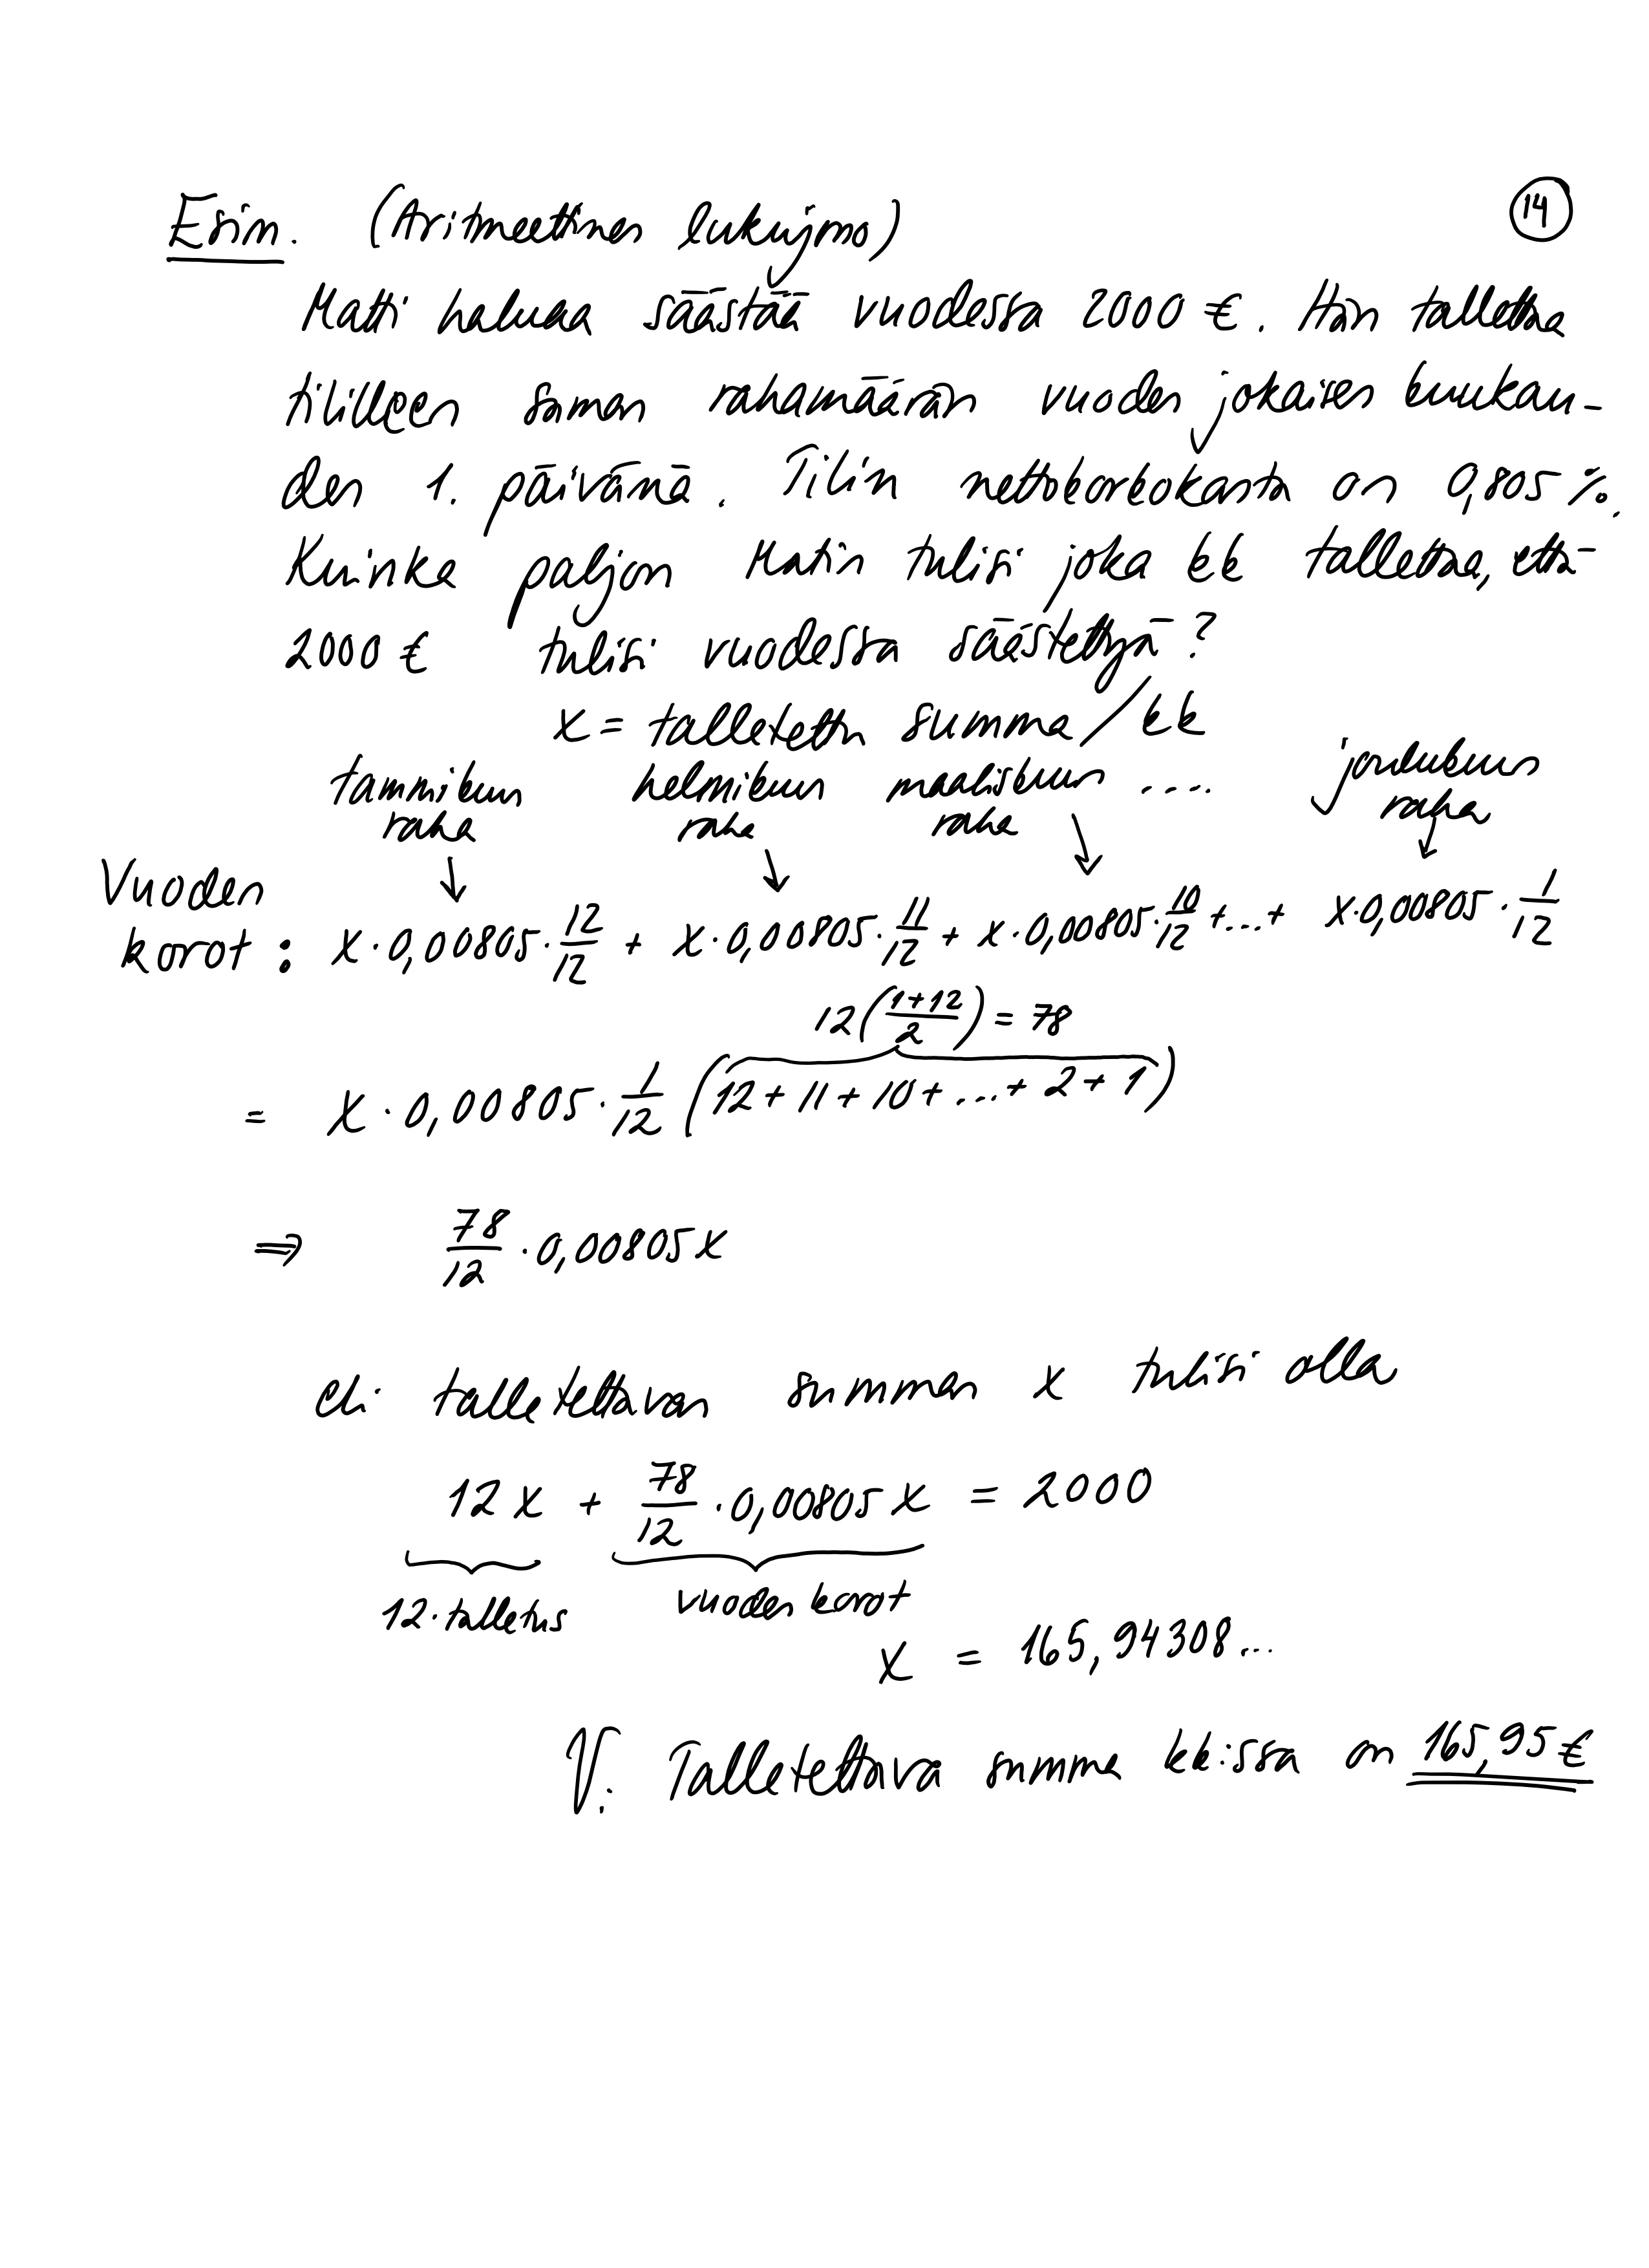 Esim. (Aritmeettinen lukujono) 14
Matti haluaa säästää vuodessa 2000 €. Hän tallettaa
tililleen saman rahamäärän vuoden jokaisen kuukau-
den 1. päivänä. Tilin nettokorkokanta on 0,805 %.
Kuinka paljon Matin tulisi joka kk tallettaa, että
2000 € tulisi vuodessa säästettyä?
x = talletettu summa / kk
tammikuun helmikuun maaliskuun .... joulukuun
raha raha raha raha
↓ ↓ ↓ ↓
Vuoden
korot: x · 0,00805 · 12/12 + x · 0,00805 · 11/12 + x · 0,00805 · 10/12 + ... + x · 0,00805 · 1/12
12 ((1+12)/2) = 78
= x · 0,00805 · 1/12 (12 + 11 + 10 + ... + 2 + 1)
⇒ 78/12 · 0,00805 x
eli talletettavan summan x tulisi olla
12 x + 78/12 · 0,00805 x = 2000
12 · talletus vuoden korot
x = 165,94308...
V: Talletettava summa kk:ssa on 165,95 €